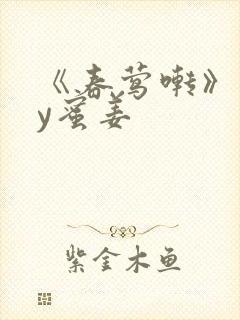 《春莺啭》
y蜜姜
紫金木鱼